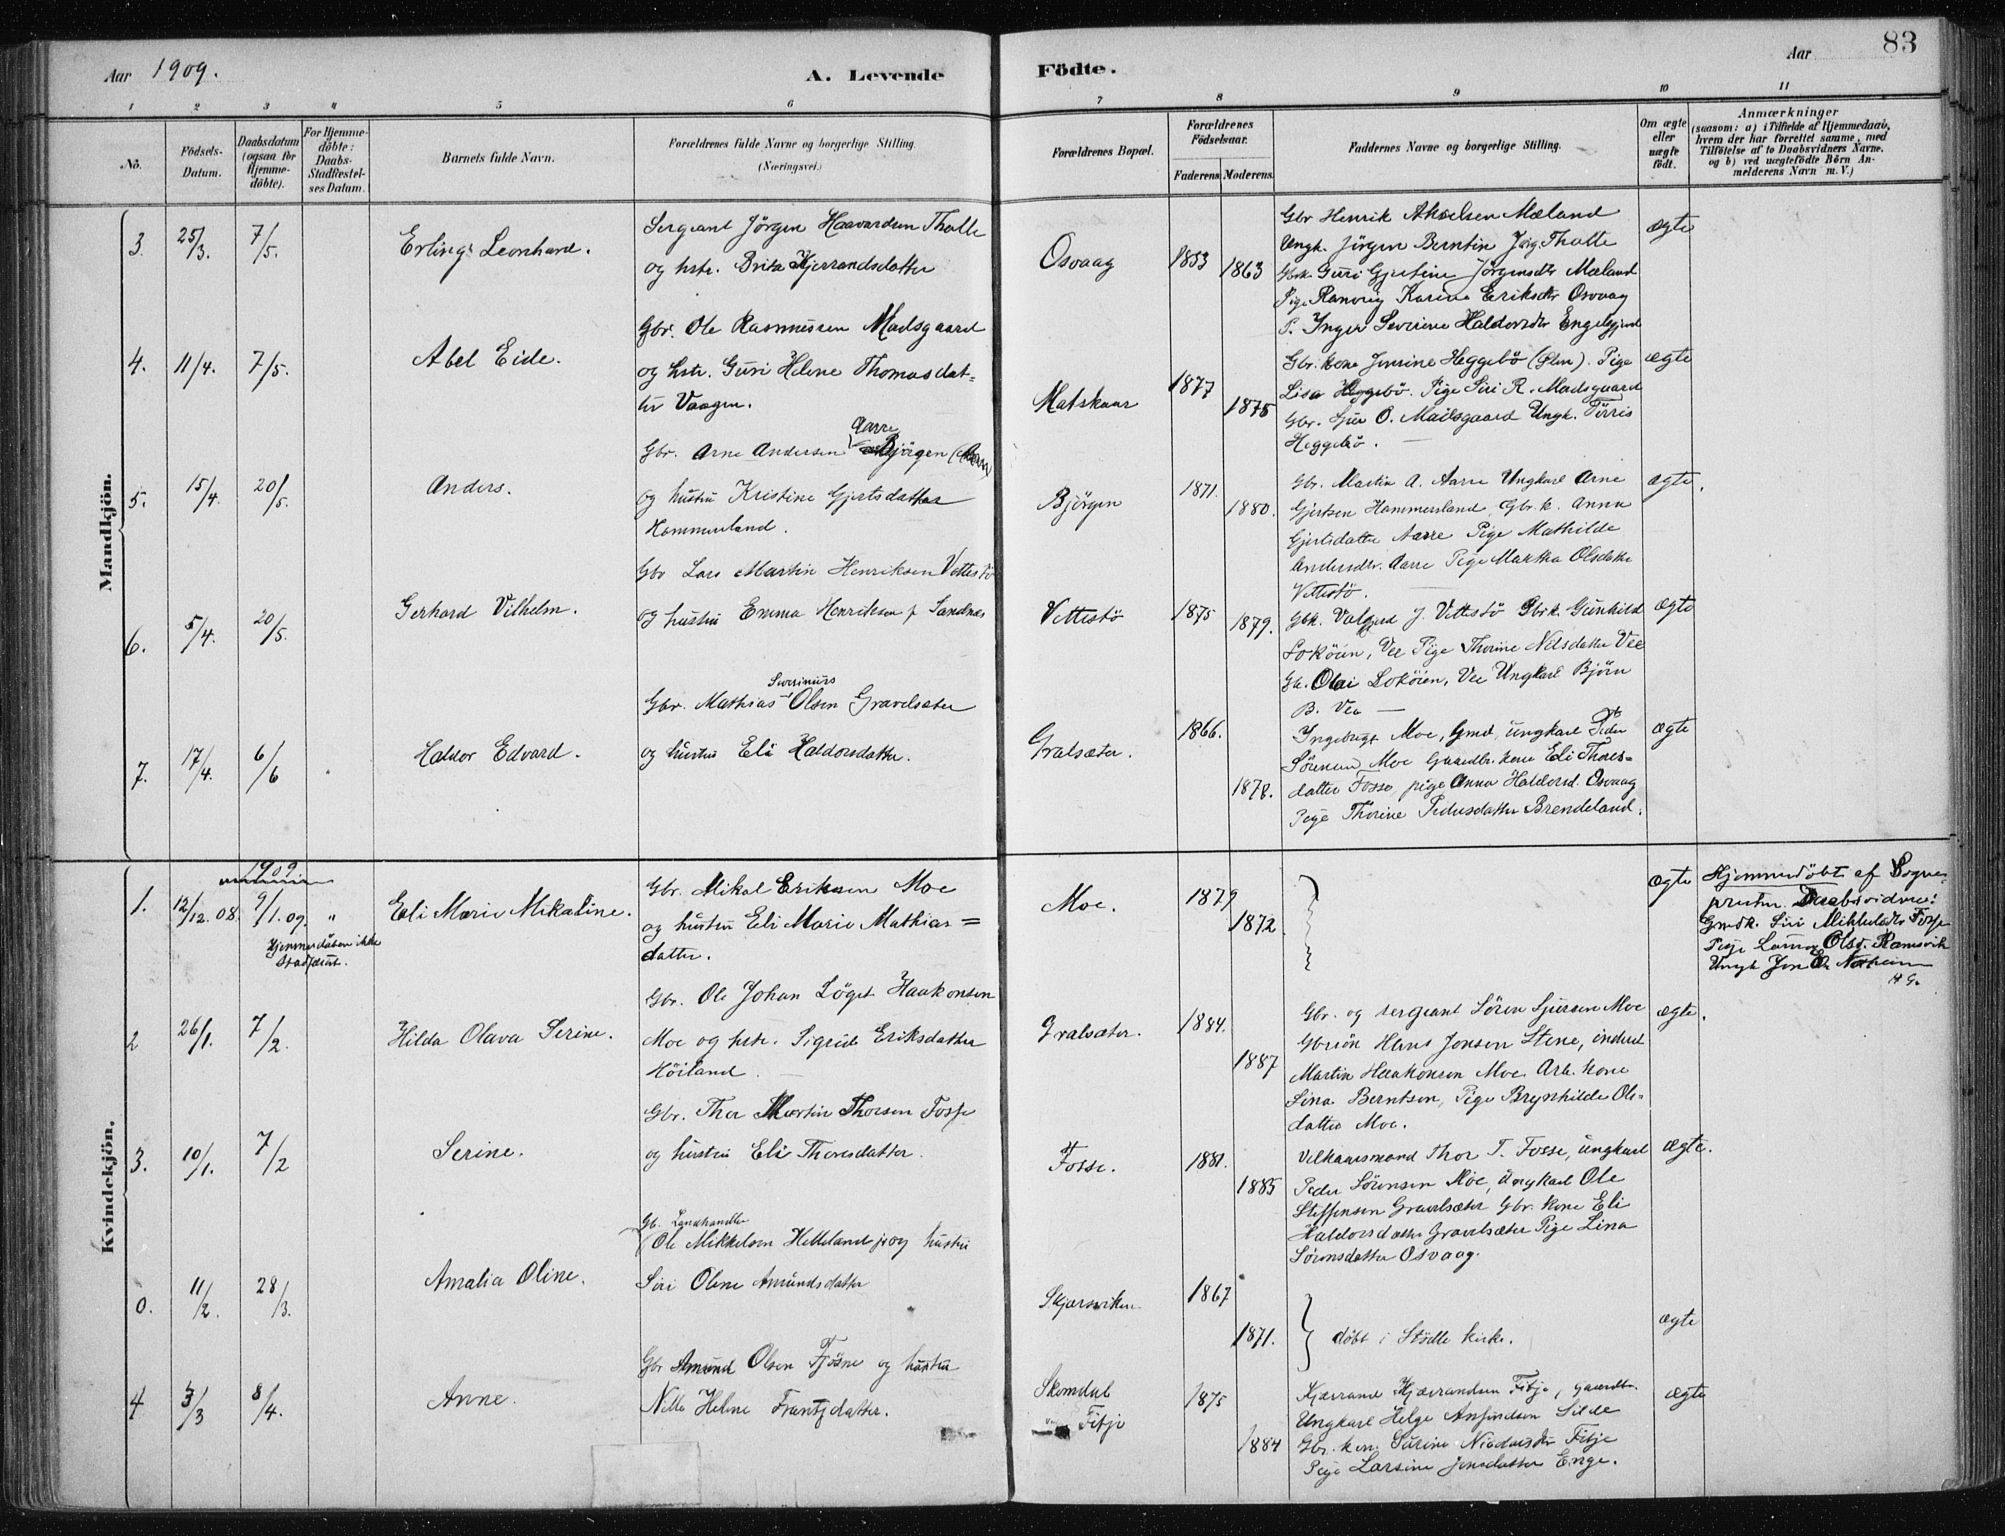 Aar 1909.
A. Levende
Födte.
Aar
83
1 2 3 4 5 6 7 8 9 10 11
No.
Födsels-
Datum.
Daabsdatum
(ogsaa for
Hjemme-
döbte).
For Hjemme-
döbte:
Daabs-
Stadfæstel-
ses Datum.
Barnets fulde Navn.
Forældrenes fulde Navne og borgerlige Stilling.
(Næringsvei.)
Forældrenes Bopæl.
Forældrenes
Födselsaar.
Faderens. Moderens.
Faddernes Navne og borgerlige Stilling.
Om ægte
eller
uægte
födt.
Anmærkninger
(saasom: a) i Tilfælde af Hjemmedaab,
hvem der har forrettet samme, med
Tilföielse af to Daabsvidners Navne,
og b) ved uægtefödte Börn An-
melderens Navn m. V.)
Mandkjön.
3. 25/3. 7/5. Erling Leonhard.
Sergeant Jörgen Haavardsen Tholle
og hstr. Brita Hjerrandsdatter
Osvaag 1853 1863
Gbr Henrik Akselsen Mæland
Ungk. Jörgen Berntin Jörg Tholle
Gbrk. Guri Gjertine Jörgensdtr Mæland
Pige Ranveig Karine Eriksdtr Osvaag
P. Inger Severine Haldorsdtr Engelsgjerd
ægte
4. 11/4. 7/5. Abel Eide.
Gbr. Ole Rasmussen Madsgaard
og hstr. Guri Helene Thomasdat=
ter Vaagen.
Matskaar 1877 1875
Gbr. kone Jensine Heggebö (Ølen). Pige
Lisa Heggebö. Pige Siri R. Madsgaard
Gbr. Sjur O. Madsgaard Ungk. Törris
Heggebö.
ægte
5. 15/4. 20/5. Anders.
Aarre
Gbr. Arne Andersen Björgen
og hustru Kristine Gjertsdatter
Hammersland.
Bjørgen 1871. 1880.
Gbr. Martin A. Aarre Ungkarl Arne
Gjertsen Hammersland, Gbr.k. Anna
Gjertsdatter Aarre Pige Mathilde
Andersdtr. Aarre Pige Martha Olsdatter
Vettestö.
ægte.
6. 5/4. 20/5. Gerhard Vilhelm.
Gbr Lars Martin Henriksen Vettestö
og hustru Emma Henriksen f. Sandnes
Vettestö 1875 1879.
Gbk. Valgjerd J. Vettestö Gbrk. Gunhild
Loköien, Vee Pige Thorine Nilsdatter Vee
Gb. Olai Loköien, Vee Ungkarl Bjørn
B. Vea
ægte
7. 17/4. 6/6 Haldor Edvard.
Severinus
Gbr. Mathias Olsen Gravelsæter
og hustru Eli Haldorsdatter.
Gralsæter. 1866. 1878.
Ingebrigt Moe, Gmd, ungkarl Peder
Sörensen Moe Gaardbr. kone Eli Thores=
datter Fosse, pige Anna Haldorsd. Osvaag
Pige Thorine Pedersdatter Brendeland.
ægte
Kvindekjön.
1909
1. 12/12.08. 9/1.09. " Eli Marie Mikaline.
Hjemmedåben ikke
stadfæst.
Gbr. Mikal Eriksen Moe
og hustru Eli Marie Mathias=
datter.
Moe. 1879 1872
ægte
Hjemmedöbt af Sogne-
presten. Daabsvidner:
Gmdk. Siri Mikkelsdtr Fosse
Pige Laura Olsd. Ramsvik
Ungk Jon E. Nerheim
H G.
2 26/1. 7/2. Hilda Olava Serine.
Gbr. Ole Johan Löget Haakonsen
Moe og hstr. Sigrid Eriksdatter
Höiland.
Gralsæter. 1884. 1887
Gbr. og sergeant Sören Sjursen Moe
Gbrsön Hans Jonsen Stene, inderst
Martin Haakonsen Moe. Arb. kone
Lina Berntsen, Pige Brynhilde Ols-
datter Moe.
ægte.
3. 10/1. 7/2 Serine.
Gbr. Thor Martin Thorsen Fosse
og hustru Eli Thoresdatter.
Fosse. 1881. 1885
Vilkaarsmand Thor T. Fosse, ungkarl
Peder Sörensen Moe, Ungkarl Ole
Steffensen Gravelsæter Gbr. kone Eli
Haldorsdatter Gravelsæter Pige Lina
Sörensdatter Osvaag.
ægte.
0. 11/2. 28/3. Amalia Oline.
Gb. Landhandler
Ole Mikkelsen Helleland jr og hustru
Siri Olene Amundsdatter
Skjersviken 1867 1871.
döbt i Stödle kirke.
ægte
4 3/3 8/4. Anne.
Gbr Amund Olsen Fjösne og hustru
Nille Helene Frantzdatter.
Skomdal
Fitje 1875 1884
Kjærrand Hjærandsen Fitje, gaardbr.
Ungkarl Helge Anfindsen Silde
Gbr. kone Serine Nicolaisdtr Fitje
Pige Larsine Jensdatter Enge.
ægte